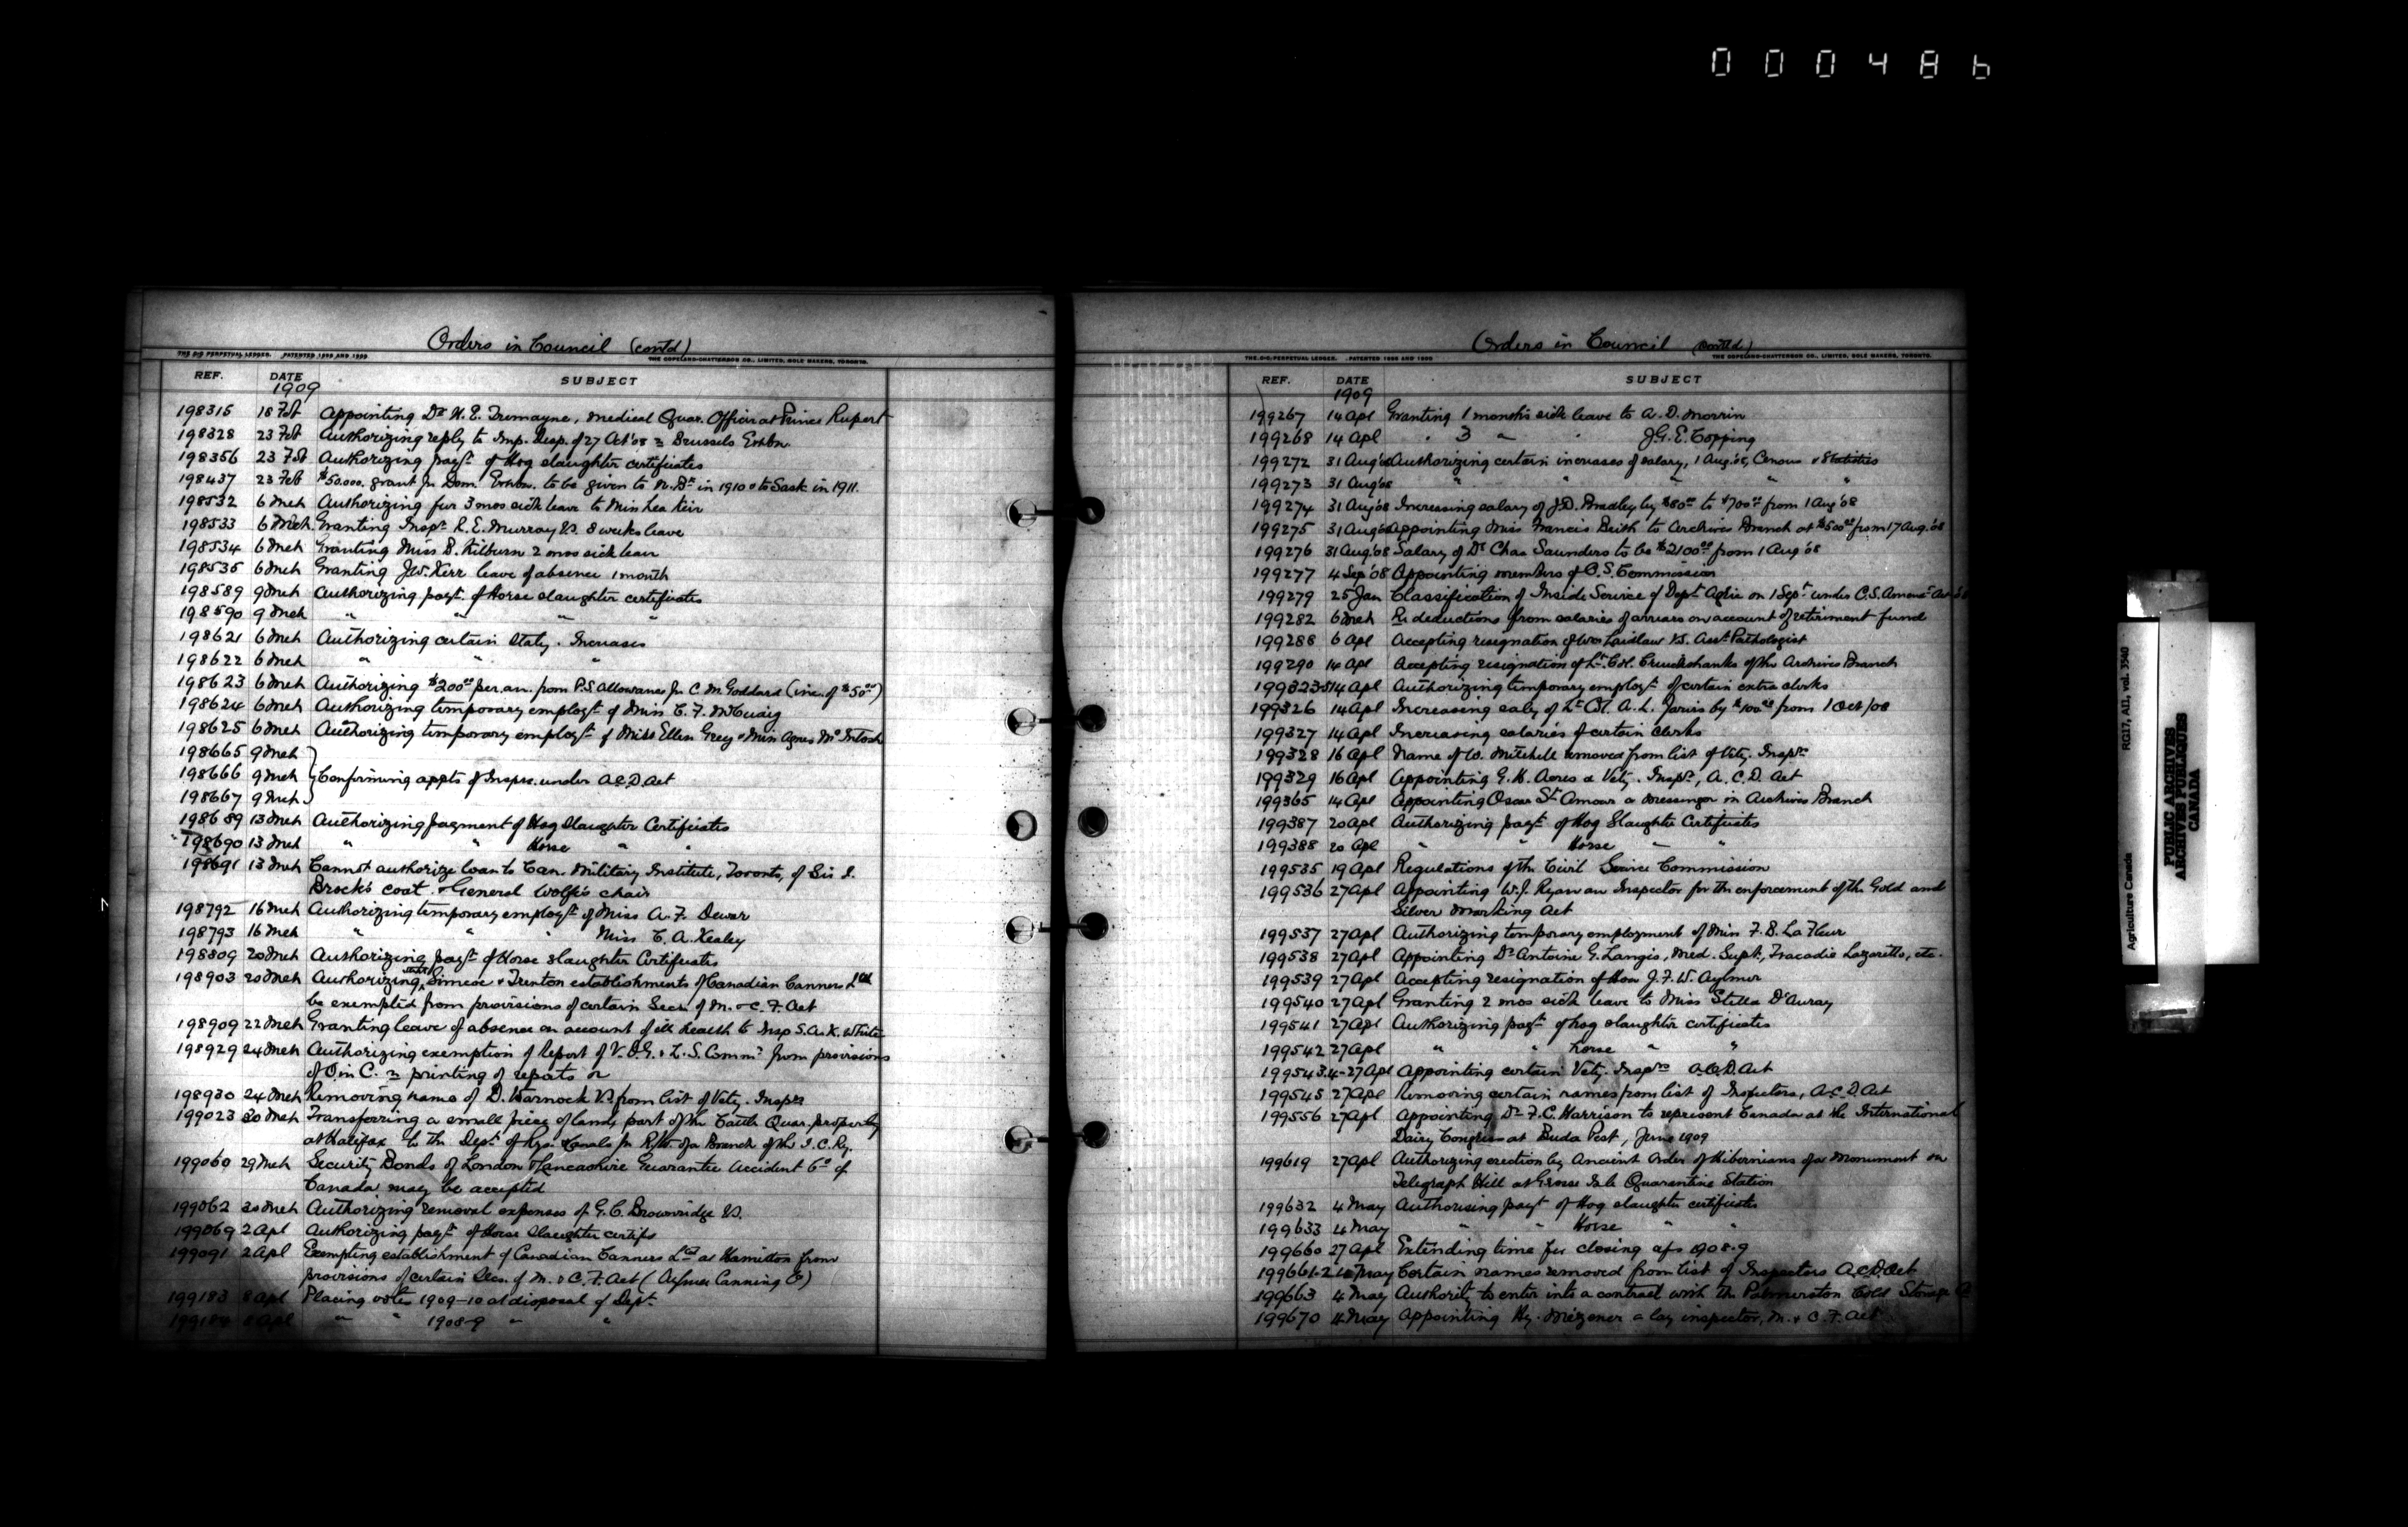 000486
Orders in Council (contd)
THE D/S PERPETUAL LEDGER. PATENTED 1898 AND 1899
THE COPELAND-CHATTERSON CO., LIMITED, SOLE MAKERS, TORONTO.
REF. DATE SUBJECT
1909
198315 18 Feb Appointing Dr H. E. Tremayne, Medical Quar. Officer at Prince Rupert
198328 23 Feb Authorizing reply to Imp. Desp. of 27 Oct '08 re Brussels Exhbn.
198356 23 Feb Authorizing payt. of Hog slaughter certificates
198437 23 Feb $50.000. grant for Dom. Exhbn. to be given to N. Bk in 1910 & to Sask. in 1911.
198532 6 Mch Authorizing fur 3 mos sick leave to Miss Lea Keir
198533 6 Mch. Granting Inspr R. E. Murray V.S. 8 weeks leave
198534 6 Mch Granting Miss D. Kilburn 2 mos sick leave
198535 6 Mch Granting J.W. Kerr leave of absence 1 month
198589 9 Mch Authorizing payt. of Horse slaughter certificates
198590 9 Mch " " " "
198621 6 Mch Authorizing certain Staty. Increases
198622 6 Mch " " "
198623 6 Mch Authorizing $200.00 per. an. from P.S. allowance for C. M. Goddard (inc. of $50.00)
198624 6 Mch Authorizing temporary employt. of Miss C. F. McCuaig
198625 6 Mch Authorizing temporary employt. of Miss Ellen Grey & Miss Agnes McIntosh
198665 9 Mch
198666 9 Mch Confirming appts of Insprs. under A.C.D. Act
198667 9 Mch
198689 13 Mch Authorizing payment of Hog Slaughter Certificates
198690 13 Mch " " Horse " "
198691 13 Mch Cannot authorize loan to Can. Military Institute, Toronto, of Sir I.
Brock's coat & General Wolfe's chair
198792 16 Mch Authorizing temporary employt. of Miss A. F. Dewar
198793 16 Mch " " " Miss C. A. Kealey
198809 20 Mch Authorizing payt. of Horse slaughter Certificates
198903 20 Mch Authorizing Simcoe & Trenton establishments of Canadian Canners Ltd
be exempted from provisions of certain Secs. of M. & C. F. Act
198909 22 Mch Granting leave of absence on account of ill health to Insp S. A. K. White
198929 24 Mch Authorizing exemption of Report of V.D.G. & L.S. Commr. from provisions
of O in C. re printing of reports
198930 24 Mch Removing name of D. Warnock V.S. from list of Vety. Insprs
199023 30 Mch Transferring a small piece of land, part of the Cattle Quar. property
at Halifax to the Dept. of Rys. & Canals for R/W. of a Branch of the I. C. Ry.
199060 29 Mch Security Bonds of London & Lancashire Guarantee Accident Co. of
Canada may be accepted
199062 30 Mch Authorizing removal expenses of G. C. Brownridge V.S.
199069 2 Apl Authorizing payt. of Horse slaughter certifs
199091 2 Apl Exempting establishment of Canadian Canners Ltd at Hamilton from
provisions of certain Secs. of M. & C. F. Act (Aylmer Canning Co)
199183 8 Apl Placing votes 1909-10 at disposal of Dept.
199184 8 Apl " " 1908-9 " "
Orders in Council (contd)
THE D/S PERPETUAL LEDGER. PATENTED 1898 AND 1899
THE COPELAND-CHATTERSON CO., LIMITED, SOLE MAKERS, TORONTO.
REF. DATE SUBJECT
1909
199267 14 Apl Granting 1 month's sick leave to A. D. Morrin
199268 14 Apl " 3 " " J.G.E. Copping
199272 31 Aug '08 Authorizing certain increases of salary, 1 Aug. '08, Census & Statistics
199273 31 Aug '08 " " " " "
199274 31 Aug '08 Increasing salary of J.D. Bradley by $80.00 to $700.00 from 1 Aug '08
199275 31 Aug '08 Appointing Miss Francis Beith to Archives Branch at $500.00 from 17 Aug. '08
199276 31 Aug '08 Salary of Dr Chas Saunders to be $2100.00 from 1 Aug '08
199277 4 Sep '08 Appointing members of C.S. Commission
199279 25 Jan Classification of Inside Service of Dept. Agric on 1 Sept. under C.S. Amend. Act
199282 6 Mch Re deductions from salaries of arrears on account of retirement fund
199288 6 Apl Accepting resignation of Wm Laidlaw V.S. Asst. Pathologist
199290 14 Apl Accepting resignation of Lt. Col. Cruickshanks of the Archives Branch
199323-5 14 Apl Authorizing temporary employt. of certain extra clerks
199326 14 Apl Increasing saly of Lt. Col. A. L. Jarvis by $100.00 from 1 Oct/08
199327 14 Apl Increasing salaries of certain Clerks
199328 16 Apl Name of W. Mitchell removed from list of Vety. Insprs
199329 16 Apl Appointing G. H. Acres a Vety. Inspr., A. C. D. Act
199365 14 Apl Appointing Oscar St. Amour a messenger in Archives Branch
199387 20 Apl Authorizing payt. of Hog Slaughter Certificates
199388 20 Apl " " Horse " "
199535 19 Apl Regulations of the Civil Service Commission
199536 27 Apl Appointing W. J. Ryan an Inspector for the enforcement of the Gold and
Silver Marking Act
199537 27 Apl Authorizing temporary employment of Miss F. B. La Fleur
199538 27 Apl Appointing Dr Antoine G. Langis, Med. Supt., Tracadie Lazaretto, etc.
199539 27 Apl Accepting resignation of Hon J. F. W. Aylmer
199540 27 Apl Granting 2 mos sick leave to Miss Stella D'Auray
199541 27 Apl Authorizing payt. of hog slaughter certificates
199542 27 Apl " " horse " "
199543.4- 27 Apl Appointing certain Vety. Insprs A.C.D. Act
199545 27 Apl Removing certain names from list of Inspectors, A.C.D. Act
199556 27 Apl Appointing Dr. F. C. Harrison to represent Canada at the International
Dairy Congress at Buda Pest, June 1909
199619 27 Apl Authorizing erection by Ancient Order of Hibernians of a Monument on
Telegraph Hill at Grosse Isle Quarantine Station
199632 4 May Authorising payt. of Hog slaughter certificates
199633 4 May " " Horse " "
199660 27 Apl Extending time for closing a/cs 1908-9
199661-2 4 May Certain names removed from list of Inspectors A.C.D. Act
199663 4 May Authority to enter into a contract with the Palmerston Cold Storage Co
199670 4 May Appointing Hy. Mizener a lay inspector, M. & C. F. Act
Agriculture Canada RG17, AII, vol. 3540
PUBLIC ARCHIVES
ARCHIVES PUBLIQUES
CANADA